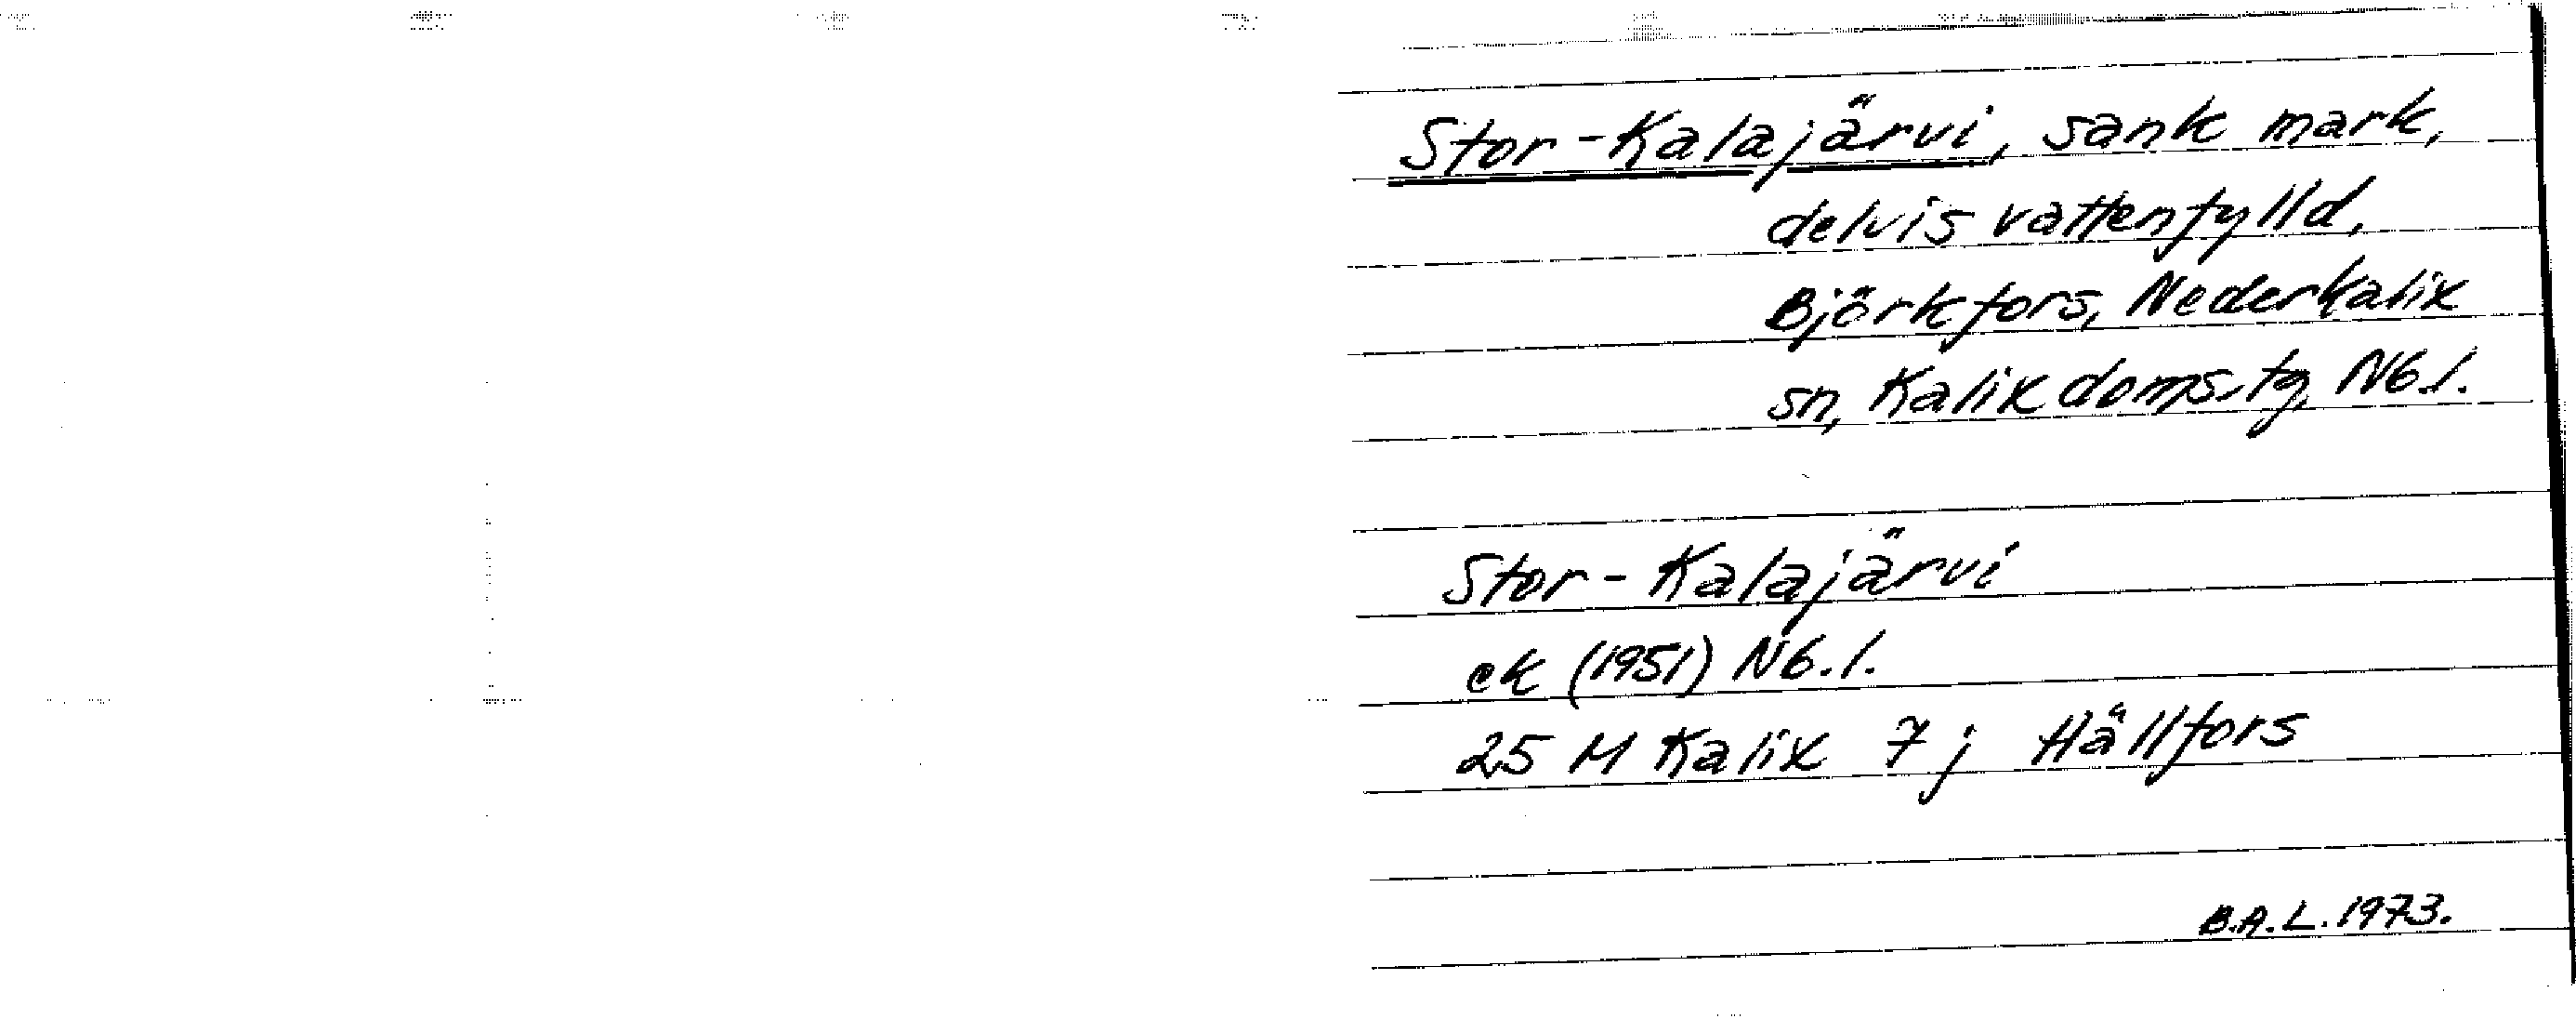 Stor-Kalajärvi, sank mark,
delvis vattenfylld,
Björkfors, Nederkalix
sn, Kalix doms.tg, Nb.l.
Stor-Kalajärvi
ek (1951) Nb.l.
25 M Kalix 7j Hällfors
B.A.L. 1973.